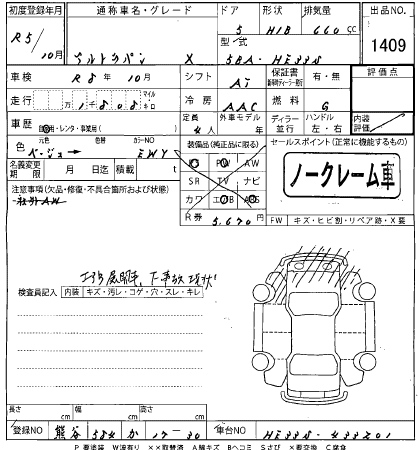 初度登録年月 通称車名・グレード ドア 形状 排気量 出品NO.
R5/10月 アルトラパン X 5 H/B 660cc 1409
型式 5BA-HE33S
車検 R8年10月 シフト AT 保証書 有・無 評価点
走行 万1千808 マイル キロ 冷房 AAC 燃料 G
車歴 自家用・レンタ・事業用( ) 定員 4人 外車モデル 年 ディーラー 並行 ハンドル 左・右 内装評価
色 元色 色替 カラーNO
ベージュ → EWY
装備品(純正品に限る) セールスポイント(正常に機能するもの)
名義変更期限 月 日迄 積載 t
PS PW AW
SR TV ナビ
カワ エアB ABS
ノークレーム車
注意事項(欠品・修復・不具合箇所および状態)
社外AW
R券 5,670円
FW キズ・ヒビ割・リペア跡・X要
検査員記入 内装 キズ・汚レ・コゲ・穴・スレ・キレ
長さ cm 幅 cm 高さ cm
登録NO 熊谷 584 か 17-30 車台NO HE33S-433201
P 要塗装 W波有り ××取替済 A線キズ Bヘコミ Sさび ×要交換 C腐食